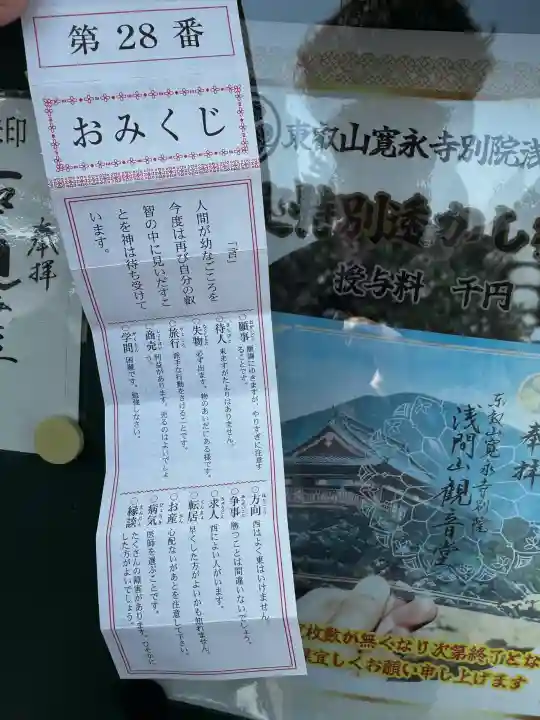 第28番
おみくじ
「吉」
人間が幼なごころを
今度は再び自分の叡
智の中に見いだすこ
とを神は待ち受けて
います。
○願事 順調にゆきますが、やりすぎに注意す
ることです。
○待人 来ますがたよりはありません。
○失物 必ず出ます。物のあいだにある様です。
○旅行 派手な行動をさけることです。
○商売 利益があります。売るのはよいでしょ
う。
○学問 困難です。勉強しなさい。
○方向 西はよく東はいけません。
○争事 勝つことは間違いないでしょう。
○求人 西によい人がいます。
○転居 早くした方がよいかも知れません。
○お産 心配ないがあとを注意して下さい。
○病気 医師を選ぶことです。
○縁談 たくさんの障害があります。ひそかに
した方がよいでしょう。
印
奉拝
東叡山寛永寺別院浅
特別透かし
授与料 千円
奉拝
東叡山寛永寺別院
浅間山観音堂
枚数が無くなり次第終了とな
宜しくお願い申し上げます